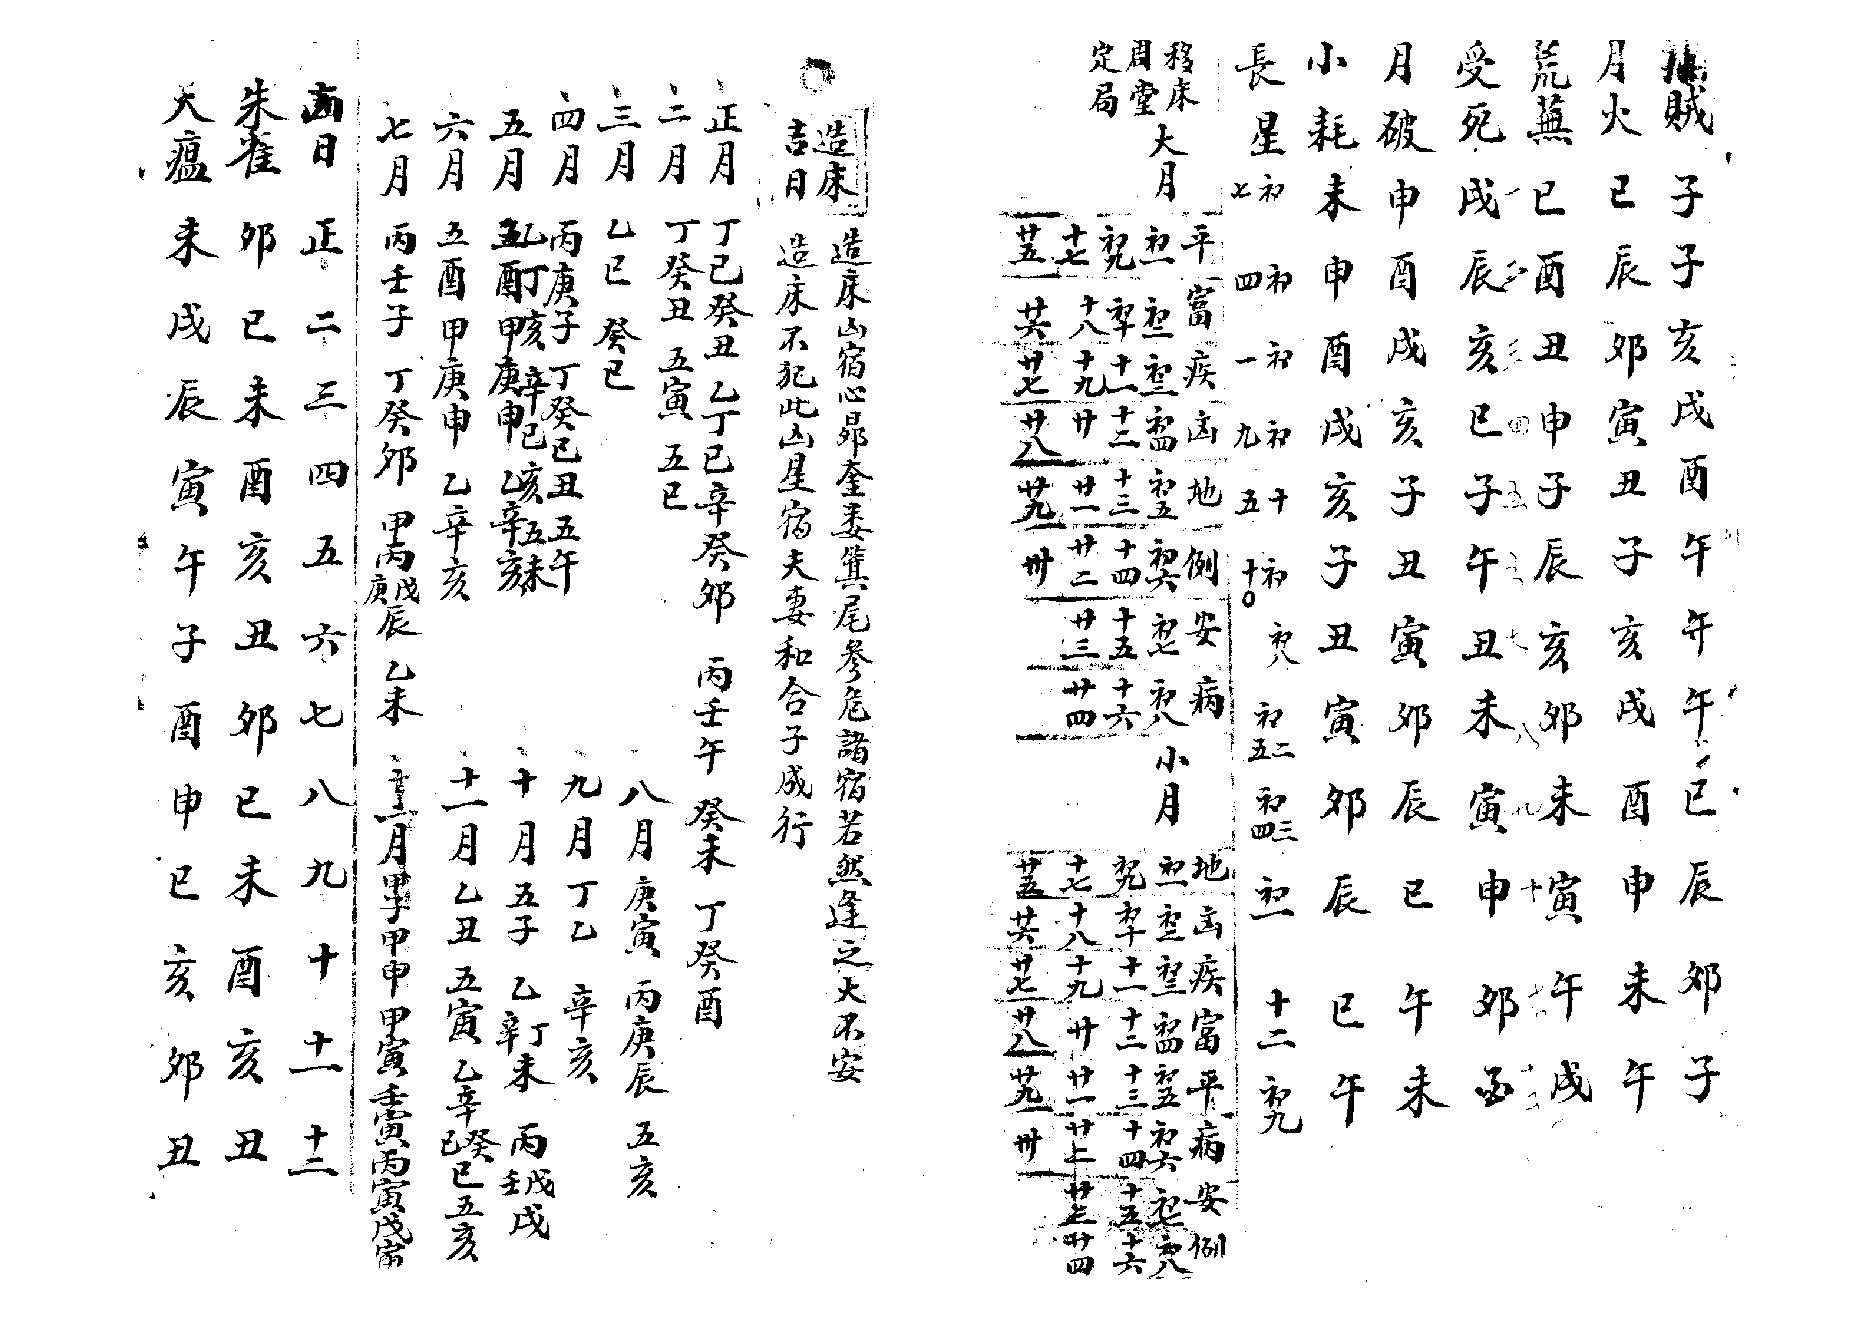 賊子子亥戌酉午午午巳辰卯子
月火巳辰卯寅丑子亥戌酉申未午
荒蕪巳酉丑申子辰亥卯未寅午戌
受死戌辰亥巳子午丑未寅申卯酉
月破申酉戌亥子丑寅卯辰巳午未
小耗未申酉戌亥子丑寅卯辰巳午
長星初七初四初一初九十五初十初八初二初五初三初四初一十二初九
移床周堂定局
大月
平初一初九十七廿五
富初二初十十八廿六
疾初三十一十九廿七
凶初四十二廿廿八
地初五十三廿一廿九
例初六十四廿二卅
安初七十五廿三
病初八十六廿四
小月
地初一初九十七廿五
凶初二初十十八廿六
疾初三十一十九廿七
富初四十二廿廿八
平初五十三廿一廿九
病初六十四廿二卅
安初七十五廿三
例初八十六廿四
造床吉日
造床凶宿心昴奎婁箕尾參危諸宿若然逢之大不安
造床不犯此凶星宿夫妻和合子成行
正月丁巳癸丑乙丁巳辛癸卯丙壬午癸未丁癸酉
二月丁癸丑五寅五巳
三月乙巳癸巳
四月丙庚子丁癸巳丑五午
五月乙丁亥辛巳亥五未
五酉甲庚申乙辛亥
六月五酉甲庚申乙辛亥
七月丙壬子丁癸卯甲丙戊庚辰乙未
八月庚寅丙庚辰五亥
九月丁乙辛亥
十月五子乙丁辛未丙戊壬戌
十一月乙丑五寅乙辛癸己巳五亥
十二月甲子甲申甲寅壬寅丙寅戊寅
凶日正二三四五六七八九十十一十二
朱雀卯巳未酉亥丑卯巳未酉亥丑
大瘟未戌辰寅午子酉申巳亥卯丑